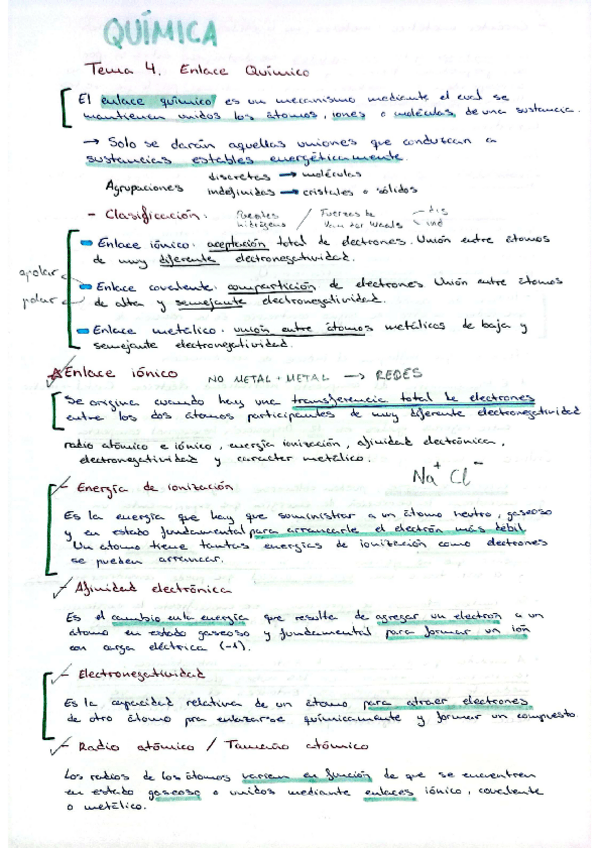 QUÍMICA
Tema 4. Enlace Químico
El enlace químico es un mecanismo mediante el cual se
mantienen unidos los átomos, iones o moléculas, de una sustancia.
→ Solo se darán aquellas uniones que conduzcan a
sustancias estables energéticamente.
Agrupaciones
discretas → moléculas
indefinidas → cristales o sólidos
- Clasificación:
Puentes hidrógeno / Fuerzas de Van der Waals
Enlace iónico: aceptación total de electrones. Unión entre átomos
de muy diferente electronegatividad.
apolar
polar
Enlace covalente: compartición de electrones Unión entre átomos
de alta y semejante electronegatividad.
Enlace metálico: unión entre átomos metálicos de baja y
semejante electronegatividad.
Enlace iónico NO METAL + METAL → REDES
Se origina cuando hay una transferencia total de electrones
entre los dos átomos participantes de muy diferente electronegatividad
radio atómico e iónico, energía ionización, afinidad electrónica,
electronegatividad y caracter metálico.
Na⁺ Cl⁻
Energía de ionización
Es la energía que hay que suministrar a un átomo neutro, gaseoso
y en estado fundamental para arrancarle el electrón más débil
Un átomo tiene tantas energías de ionización como electrones
se pueden arrancar.
Afinidad electrónica
Es el cambio en la energía que resulta de agregar un electrón a un
átomo en estado gaseoso y fundamental para formar un ión
con carga eléctrica (-1).
Electronegatividad
Es la capacidad relativa de un átomo para atraer electrones
de otro átomo pra enlazarse químicamente y formar un compuesto
Radio atómico / Tamaño atómico
Los radios de los átomos varían en función de que se encuentren
en estado gaseoso o unidos mediante enlaces iónico, covalente
o metálico.